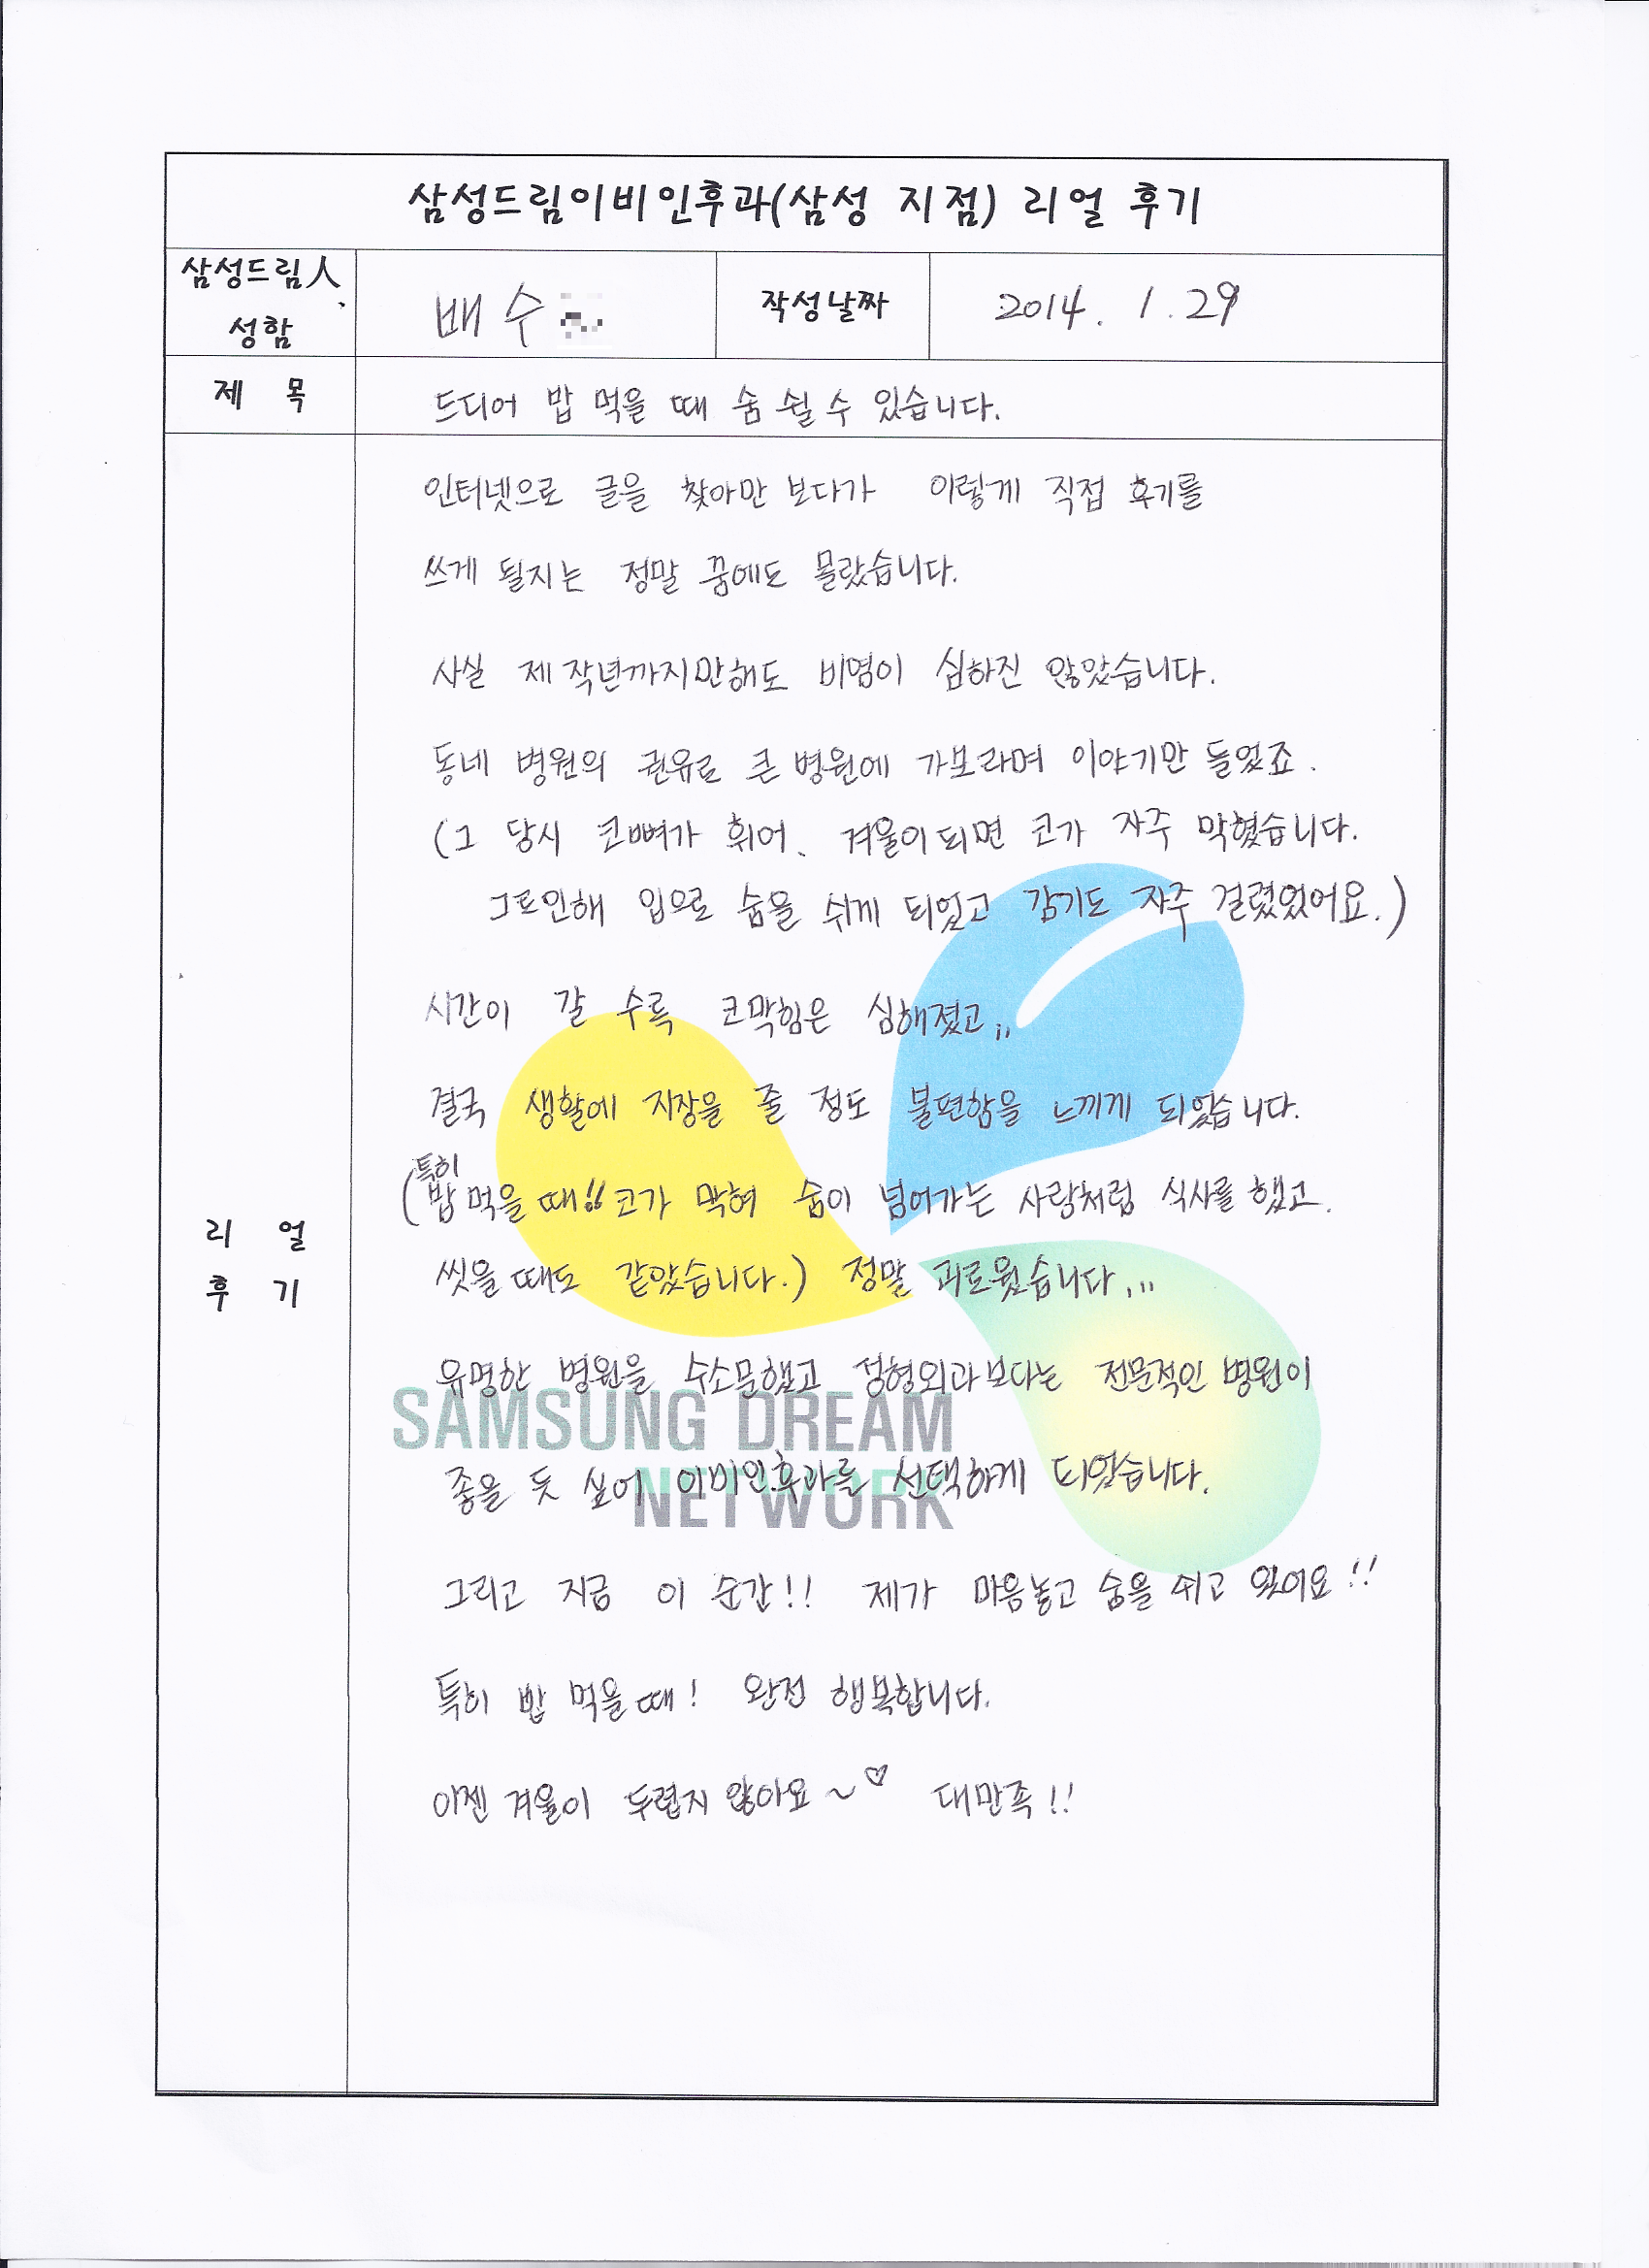 삼성드림이비인후과(삼성 지점) 리얼 후기
삼성드림人
성함
배수
작성날짜
2014. 1. 29
제 목
드디어 밥 먹을 때 숨 쉴 수 있습니다.
인터넷으로 글을 찾아만 보다가 이렇게 직접 후기를
쓰게 될지는 정말 꿈에도 몰랐습니다.
사실 제작년까지만해도 비염이 심하진 않았습니다.
동네 병원의 권유로 큰 병원에 가보라며 이야기만 들었죠.
(그 당시 코뼈가 휘어, 겨울이되면 코가 자주 막혔습니다.
그로인해 입으로 숨을 쉬게 되었고 감기도 자주 걸렸었어요.)
시간이 갈 수록 코막힘은 심해졌고,,
결국 생활에 지장을 줄 정도 불편함을 느끼게 되었습니다.
(특히
밥 먹을 때!! 코가 막혀 숨이 넘어가는 사람처럼 식사를 했고.
씻을 때도 같았습니다.) 정말 괴로웠습니다...
유명한 병원을 수소문했고 성형외과보다는 전문적인 병원이
좋을 듯 싶어 이비인후과를 선택하게 되었습니다.
그리고 지금 이 순간!! 제가 마음놓고 숨을 쉬고 있어요!!
특히 밥 먹을때! 완전 행복합니다.
이젠 겨울이 두렵지 않아요~♡ 대만족!!
리 얼
후 기
SAMSUNG DREAM
NETWORK